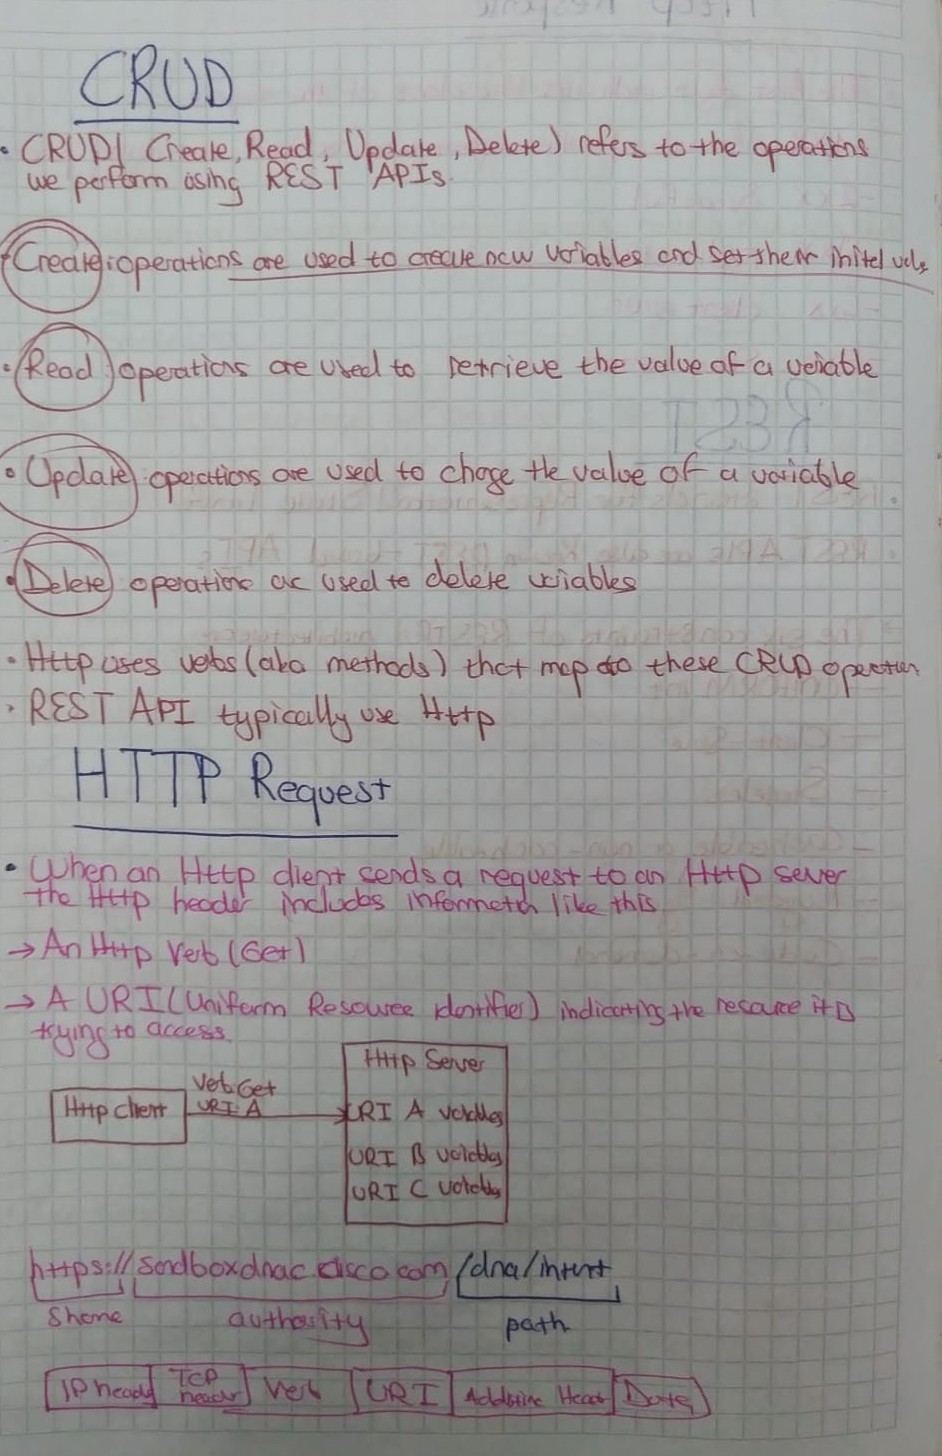 CRUD
• CRUD( Create, Read, Update, Delete) refers to the operations
we perform using REST APIs.
Create operations are used to create new variables and set them
• Read operations are used to retrieve the value of a variable
• Update operations are used to change the value of a variable
• Delete operations are used to delete variables
• Http uses verbs (aka methods) that map to these CRUD operation
• REST API typically use Http
HTTP Request
• When an Http client sends a request to an Http server
the Http header includes information like this
→ An Http Verb (Get)
→ A URI (Uniform Resource Identifier) indicating the resource it is
trying to access.
Http Server
Verb: Get
Http client
URI: A
URI A variables
URI B variables
URI C variables
https://sandboxdnac.cisco.com/dna/intent
authority
path
IP header
TCP header
Verb
URI
Header
Data